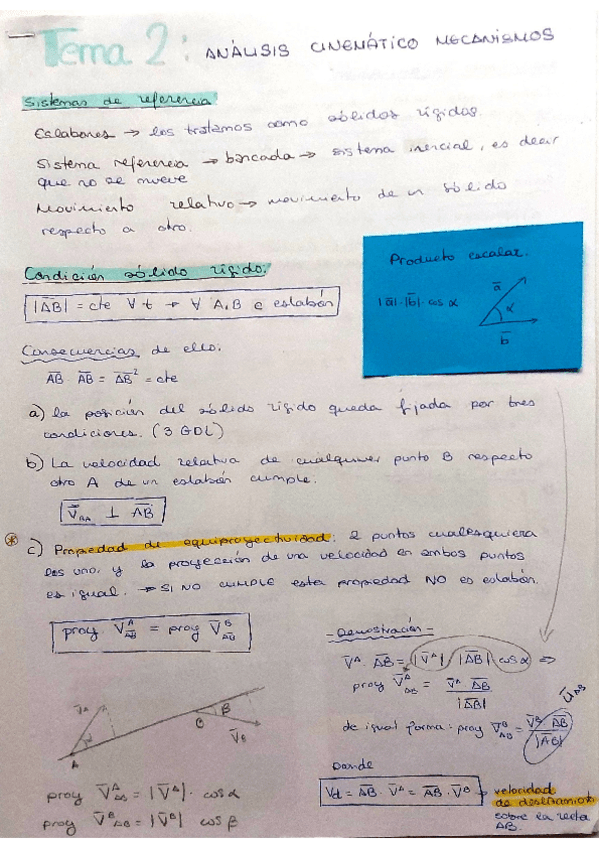 Tema 2: ANÁLISIS CINEMÁTICO MECANISMOS
Sistemas de referencia
Eslabones → los tratamos como sólidos rígidos.
Sistema referencia → bancada → sistema inercial, es decir
que no se mueve
Movimiento relativo → movimiento de un sólido
respecto a otro.
Producto escalar.
|a̅|·|b̅|·cos α
a̅
α
b̅
Condición sólido rígido.
|A̅B̅| = cte ∀ t → ∀ A,B ∈ eslabón
Consecuencias de ello.
A̅B̅ A̅B̅ = A̅B̅² = cte
a) la posición del sólido rígido queda fijada por tres
condiciones. (3 GDL)
b) La velocidad relativa de cualquier punto B respecto
otro A de un eslabón cumple.
V̅BA ⊥ A̅B̅
* c) Propiedad de equiproyectividad: 2 puntos cualesquiera
los uno, y la proyección de una velocidad en ambos puntos
es igual. → SI NO CUMPLE esta propiedad NO es eslabón.
proy. V̅ᴬAB = proy V̅ᴮAB
- Demostración -
V̅ᴬ A̅B̅ = |V̅ᴬ| |A̅B̅| cos α ⇒
proy V̅ᴬAB = V̅ᴬ A̅B̅ / |A̅B̅|
U̅AB
de igual forma: proy V̅ᴮAB = V̅ᴮ A̅B̅ / |A̅B̅|
Donde
Vd = A̅B̅ · V̅ᴬ = A̅B̅ · V̅ᴮ → velocidad
de deslizamiento
sobre la recta
AB.
V̅A
α
A
B
β
V̅B
proy V̅ᴬAB = |V̅ᴬ| · cos α
proy V̅ᴮAB = |V̅ᴮ| cos β